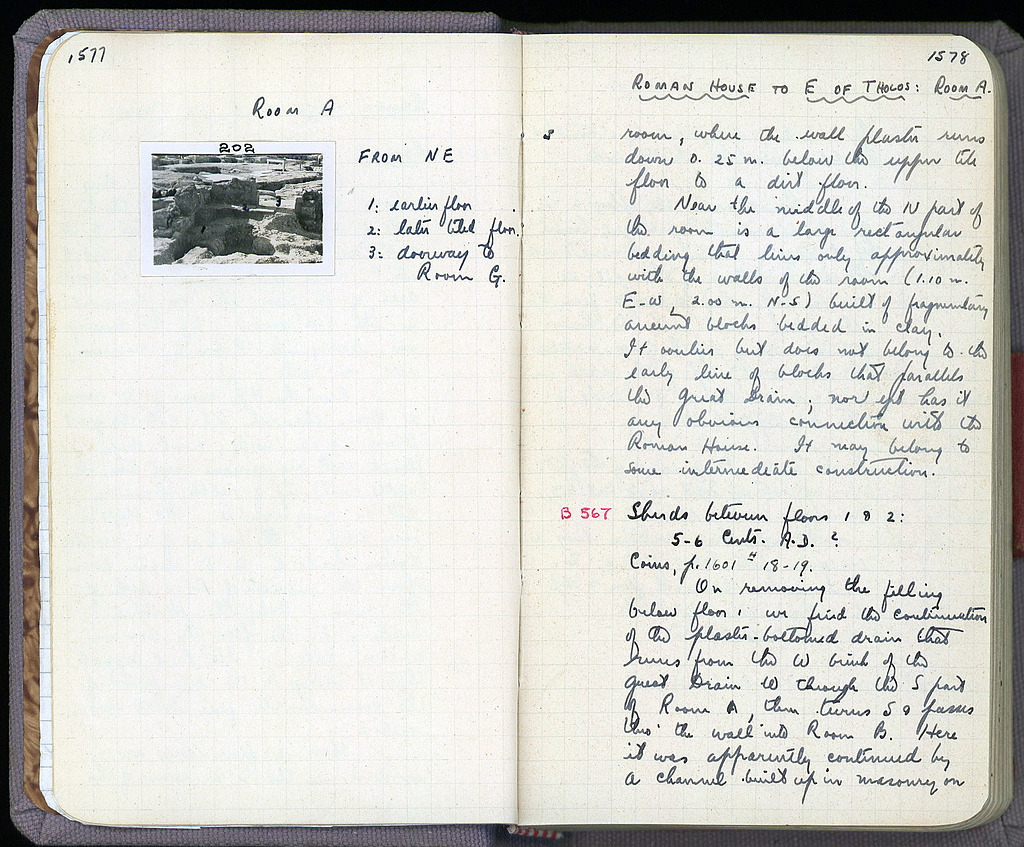 1577
Room A
202
FROM NE
1: earlier floor
2: later tiled floor.
3: doorway to
Room G.
1578
ROMAN HOUSE TO E OF THOLOS: ROOM A.
room, where the wall plaster runs
down 0.25 m. below the upper tile
floor to a dirt floor.
Near the middle of the N part of
the room is a large rectangular
bedding that lines only approximately
with the walls of the room (1.10 m.
E-W, 2.00 m. N-S) built of fragmentary
ancient blocks bedded in clay.
It but does not belong to the
early line of blocks that parallels
the Great Drain; nor yet has it
any obvious connection with the
Roman House. It may belong to
some intermediate construction.
B 567 Sherds between floors 1 & 2:
5-6 Cents. A.D. ?
Coins, p. 1601 # 18-19.
On removing the filling
below floor 1 we find the continuation
of the plaster-bottomed drain that
runs from the W brink of the
great Drain W through the S part
of Room A, then turns S & passes
thro' the wall into Room B. Here
it was apparently continued by
a channel built up in masonry on